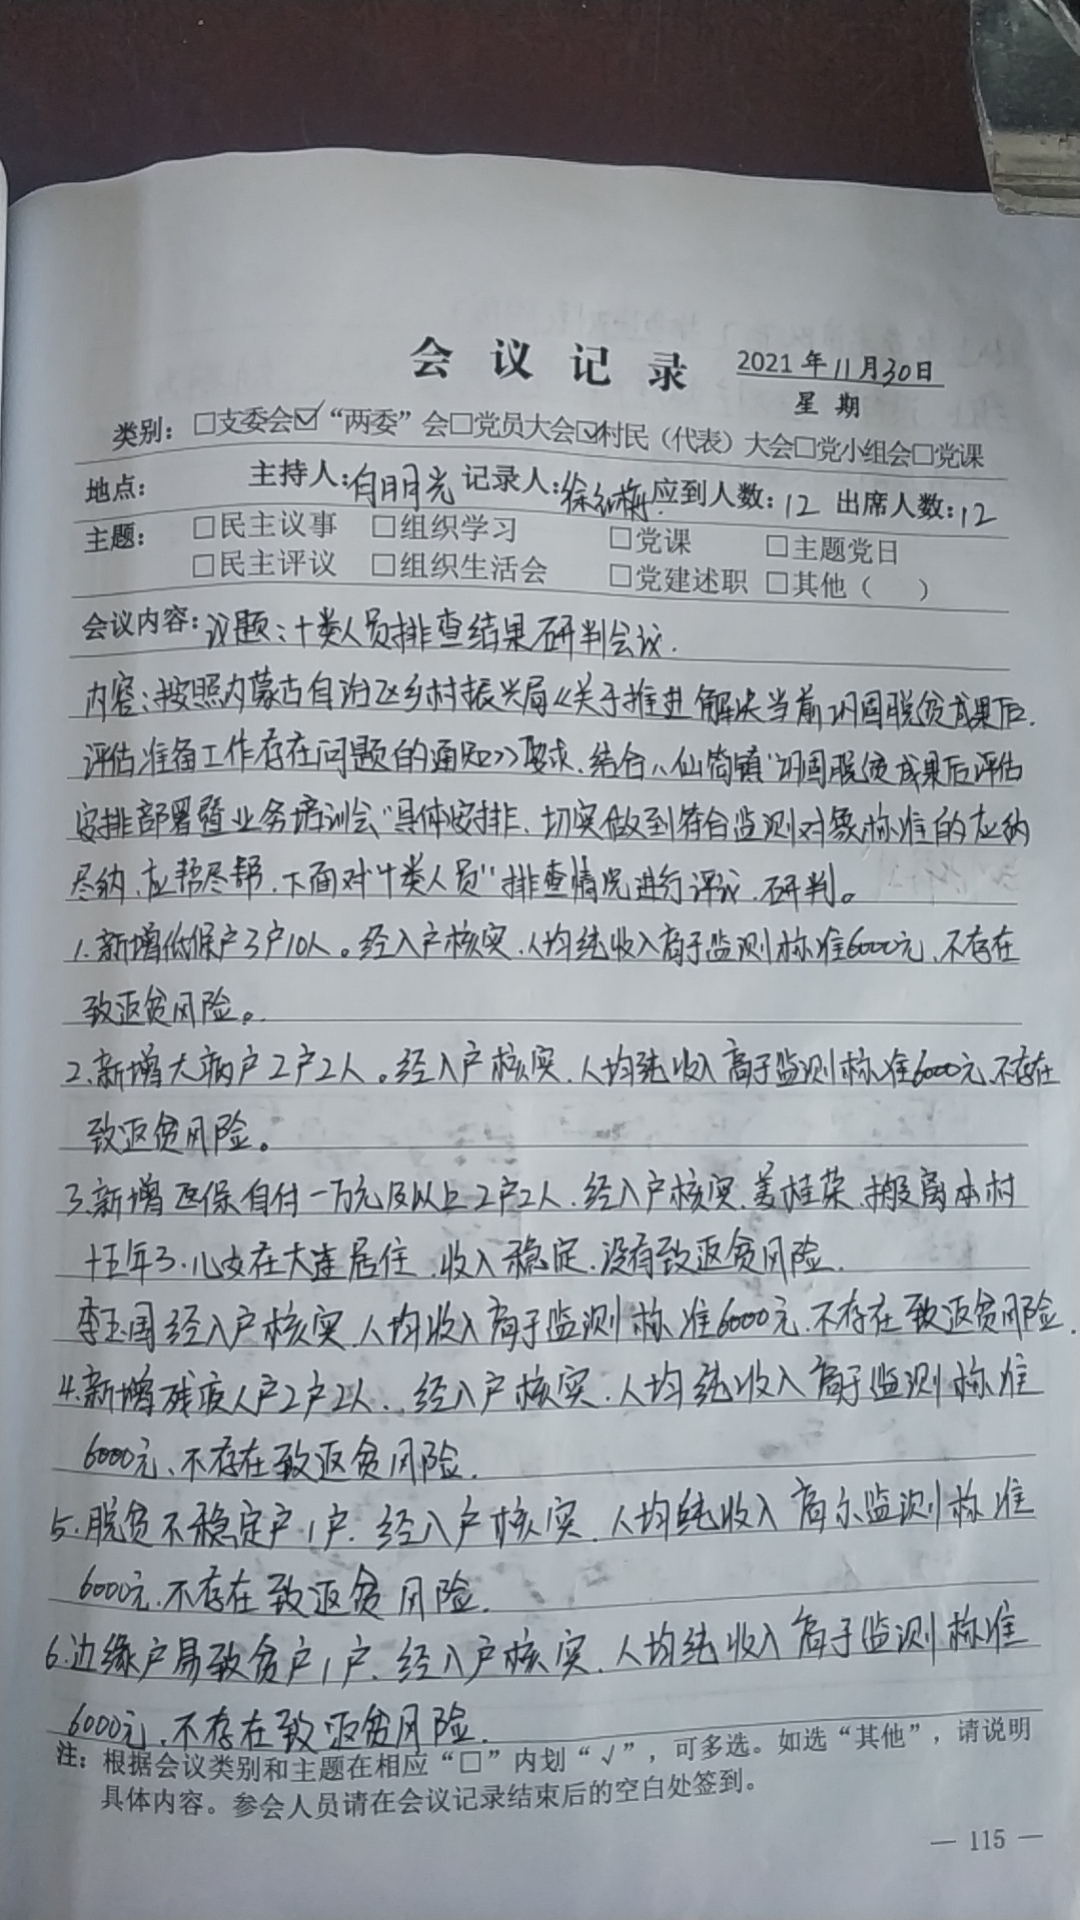 会议记录 2021年11月30日
星期
类别：□支委会☑“两委”会□党员大会☑村民（代表）大会□党小组会□党课
地点： 主持人：白明光 记录人：徐红梅 应到人数：12 出席人数：12
主题： □民主议事 □组织学习 □党课 □主题党日
□民主评议 □组织生活会 □党建述职 □其他（ ）
会议内容：议题：十类人员排查结果研判会议.
内容：按照内蒙古自治区乡村振兴局《关于推进解决当前巩固脱贫成果后
评估准备工作存在问题的通知》要求，结合八仙筒镇“巩固脱贫成果后评估
安排部署暨业务培训会”具体安排，切实做到符合监测对象标准的应纳
尽纳、应帮尽帮，下面对“十类人员”排查情况进行评议、研判。
1.新增低保户3户10人。经入户核实，人均纯收入高于监测标准6000元，不存在
致返贫风险。
2.新增大病户2户2人。经入户核实，人均纯收入高于监测标准6000元，不存在
致返贫风险。
3.新增医保自付一万元及以上2户2人，经入户核实，姜桂荣，搬离本村
十五年了，儿女在大连居住，收入稳定，没有致返贫风险.
李玉国经入户核实，人均收入高于监测标准6000元，不存在致返贫风险.
4.新增残疾人户2户2人，经入户核实，人均纯收入高于监测标准
6000元，不存在致返贫风险.
5.脱贫不稳定户1户，经入户核实，人均纯收入高尔监测标准
6000元，不存在致返贫风险.
6.边缘户易致贫户1户，经入户核实，人均纯收入高于监测标准
6000元，不存在致返贫风险.
注：根据会议类别和主题在相应“□”内划“√”，可多选。如选“其他”，请说明
具体内容。参会人员请在会议记录结束后的空白处签到。
— 115 —